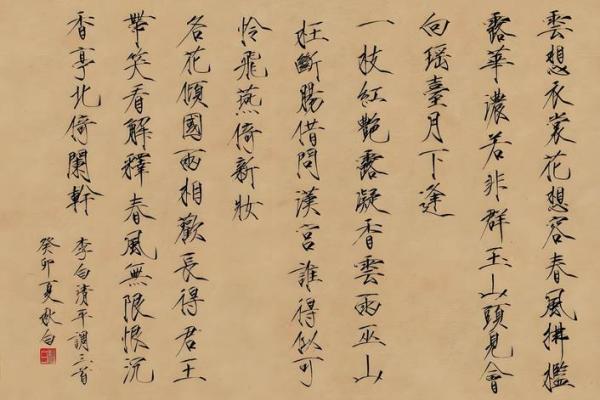 雲想衣裳花想容春風拂檻
露華濃若非群玉山頭見會
向瑶臺月下逢
一枝紅艷露凝香雲雨巫山
枉斷腸借問漢宮誰得似可
怜飛燕倚新妝
名花傾國兩相歡長得君王
帶笑看解釋春風無限恨沉
香亭北倚闌幹
李白清平調三首
癸卯夏秋白